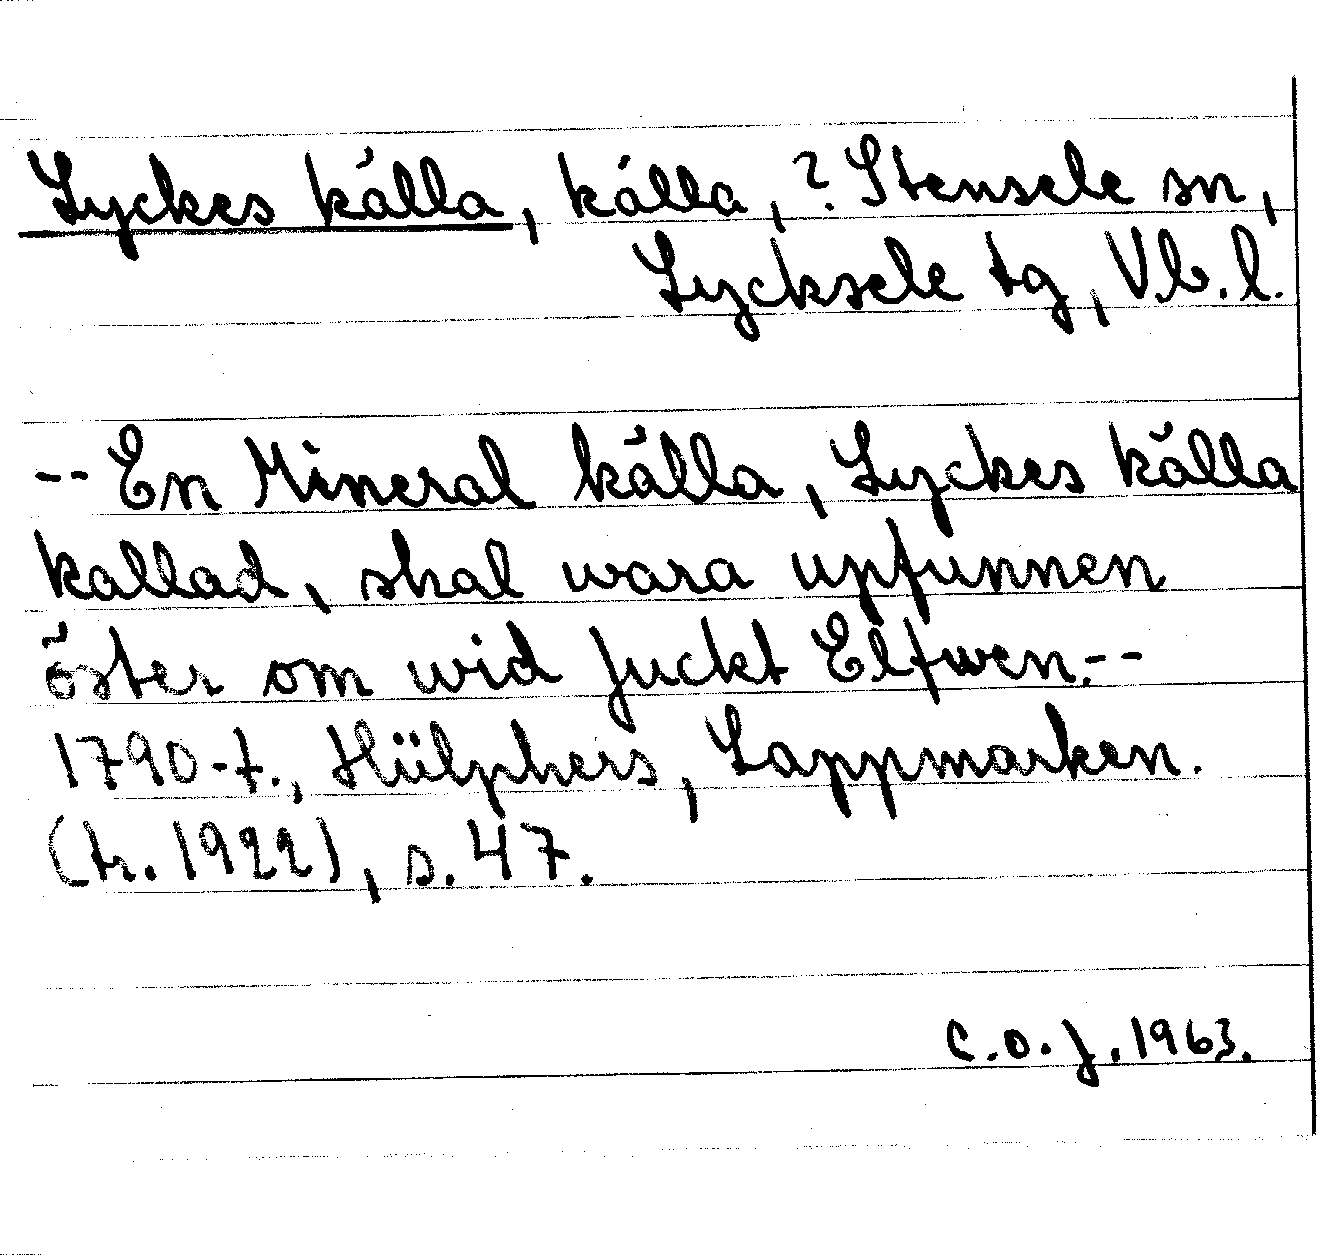 Lyckes källa, källa, ? Stensele sn,
Lycksele tg, Vb. l.
-- En Mineral källa, Lyckes källa
kallad, skal wara upfunnen
öster om wid Juckt Elfwen.--
1790-t., Hülphers, Lappmarken.
(tr. 1922), s. 47.
C.O.J. 1963.